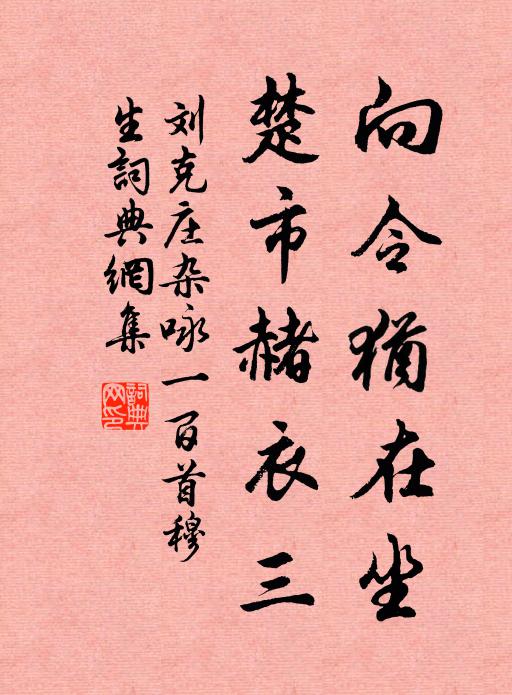 向令猶在坐
楚市赭衣三
刘克庄杂咏一百首穆
生詞典網集
詞典网印